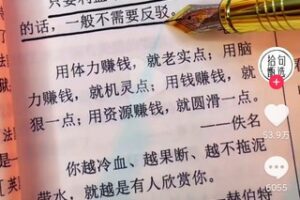 的话，一般不需要反驳。
用体力赚钱，就老实点；用脑
力赚钱，就机灵点；用钱赚钱，就
狠一点；用资源赚钱，就圆滑一点。
——佚名
你越冷血、越果断、越不拖泥
带水，就越是有人欣赏你。
——赫伯特
给句
酿造
53.9万
6055